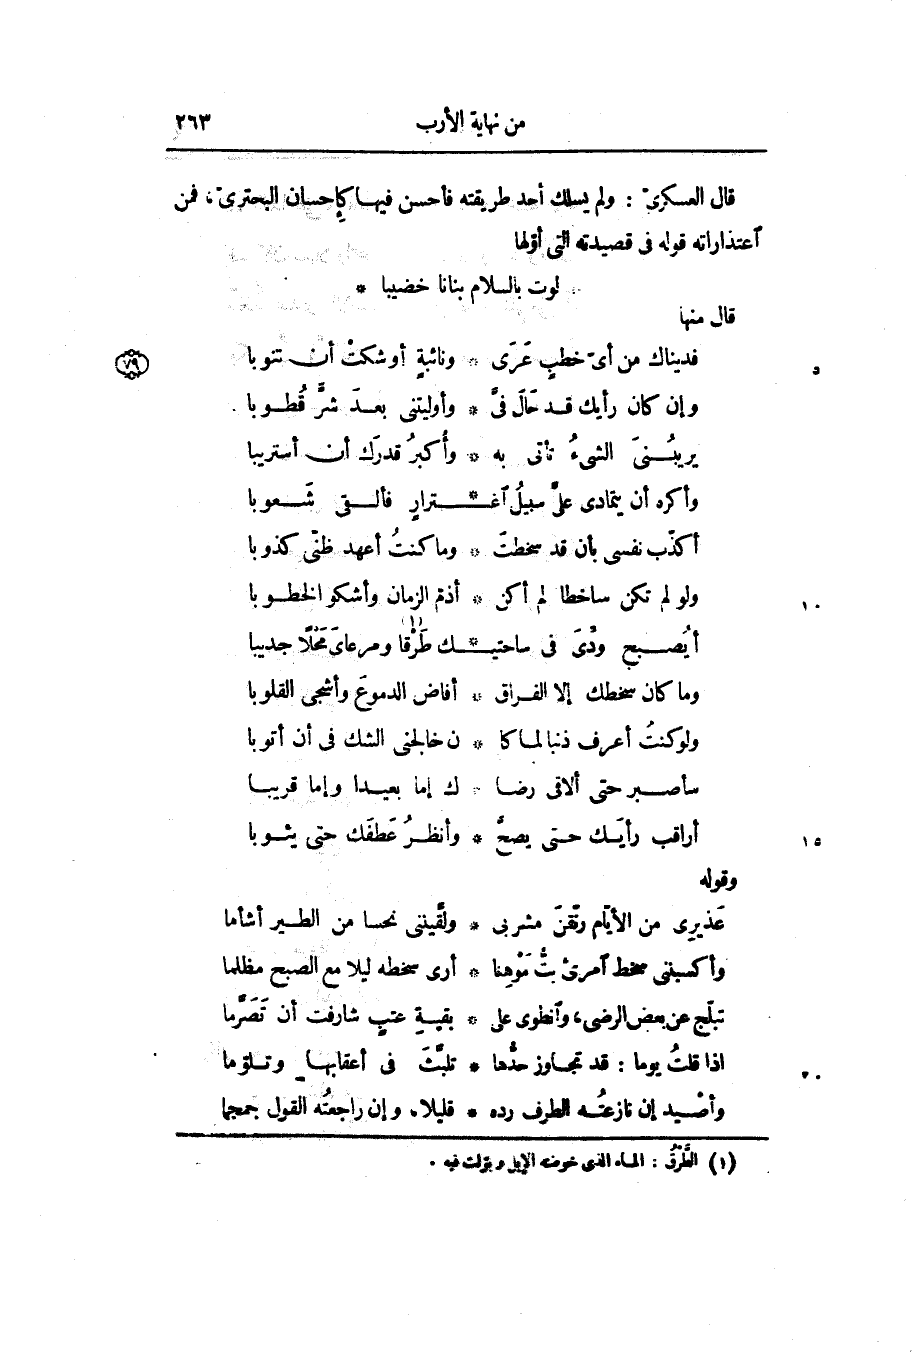 من نهاية الأرب ٢٦٣
قال العسكرىّ : ولم يسلك أحد طريقته فأحسن فيها كإحسان البحترىّ، فمن
ٱعتذاراته قوله فى قصيدته التى أوّلها
لوت بالسلام بنانا خضيبا *
قال منها
فديناك من أىّ خطبٍ عَرَى * ونائبةٍ أوشكتْ أن تنوبا ٥ ٧٩
وإن كان رأيك قد حَالَ فىَّ * وأوليتنى بعدَ شرٍّ قُطوبا .
يريبُنىَ الشىءُ تأتى به * وأُكبرُ قدرَك أن أستريبا
وأكره أن يتمادى علىَّ سبيلُ ٱغـ * ـترارٍ فألقى شَعوبا
أكذّب نفسى بأن قد سخطتَ * وما كنتُ أعهد ظنّى كذوبا
ولو لم تكن ساخطا لم أكن * أذمّ الزمان وأشكو الخطوبا ١٠
أيُصبح ودّىَ فى ساحتيـ * ـك طَرْقا (١) ومرعاىَ مَحْلًا جديبا
وما كان سخطك إلا الفراق * أفاض الدموعَ وأشجى القلوبا
ولوكنتُ أعرف ذنبا لما كا * ن خالجنى الشك فى أن أتوبا
سأصبر حتى ألاقى رضا * ك إما بعيدا وإما قريبا
أراقب رأيَك حتى يصحَّ * وأنظرُ عَطفَك حتى يثوبا ١٥
وقوله
عَذيرِى من الأيّام رنّقنَ مشربى * ولقَّيننى نحسا من الطير أشأما
وأكسبننى سخط ٱمرئ بتُّ مَوْهِنا * أرى سخطه ليلا مع الصبح مظلما
تبلّج عن بعض الرضى، وٱنطوى على * بقيةِ عتبٍ شارفت أن تَصَرَّما
اذا قلتُ يوما : قد تجاوز حدُّها * تلبَّثَ فى أعقابها وتلوّما ٢٠
وأصْيد إن نازعتُه الطرف رده * قليلا، وإن راجعتُه القول جمجما
(١) الطَّرْقُ : الماء الذى خوضته الإبل وبوّلت فيه .